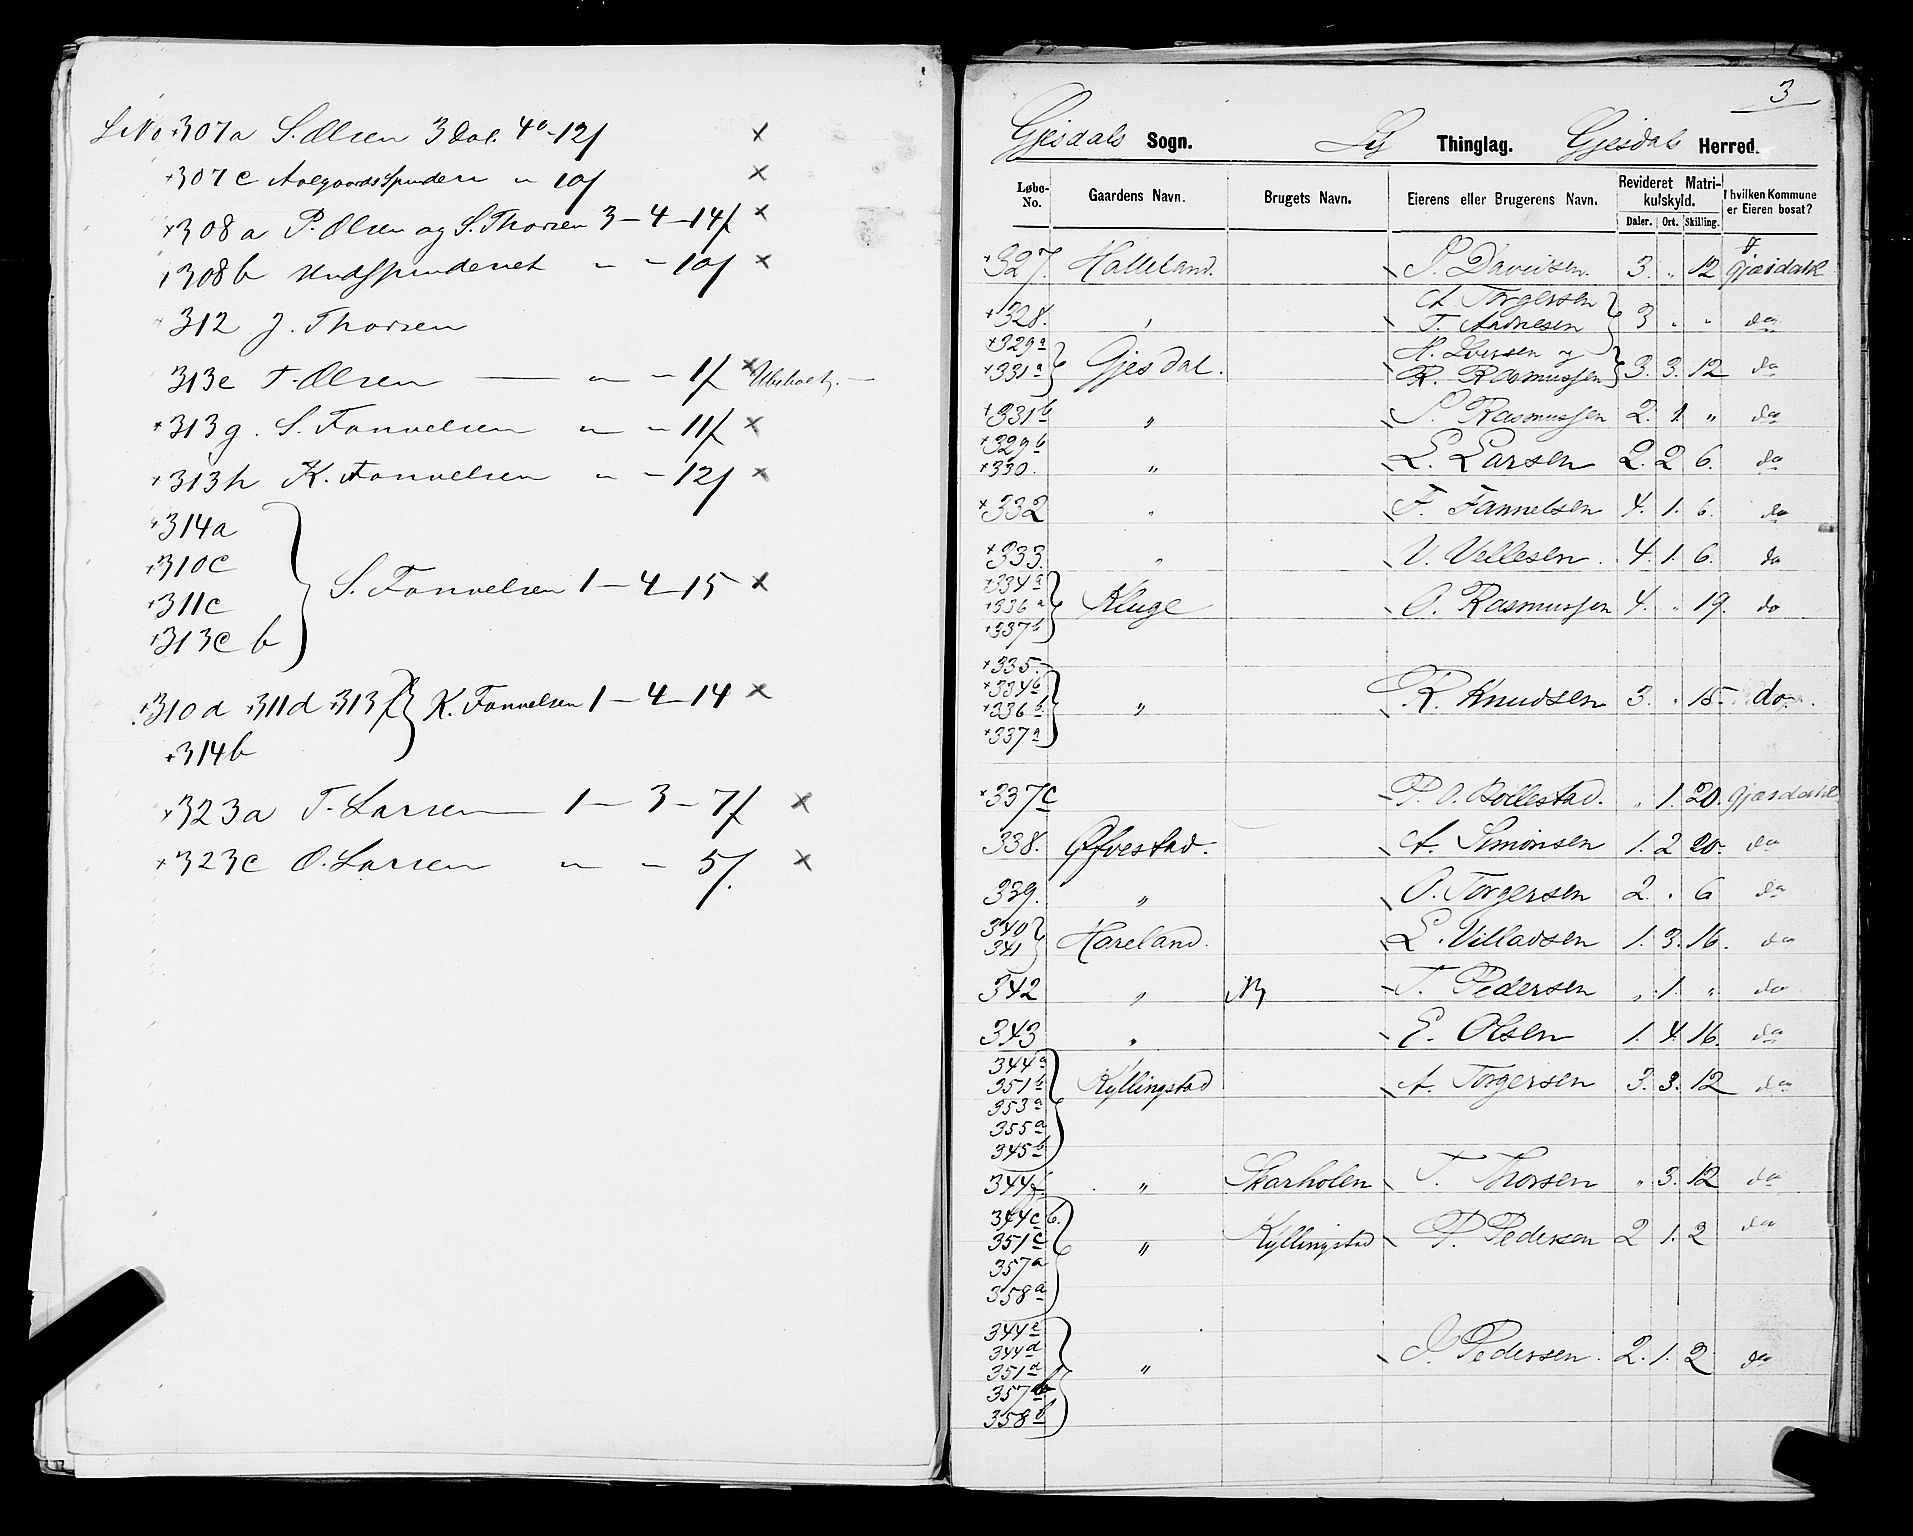 LNo 307a S. Olsen 3 Dal. 4 o - 12 ƒ x
307c Aalgaards Spinderi " 10 ƒ x
308a P. Olsen og S. Thorsen 3 - 4 - 14 ƒ x
308b Uldspinderiet " - 10 ƒ x
312 J. Thorsen
313e T. Olsen — " - 1 ƒ x
313g. S. Fanuelsen " - 11 ƒ x
313h K. Fanuelsen " - 12 ƒ x
314a
310c
311c S. Fanuelsen 1 - 4 - 15 x
313c b
310d 311d 313f K. Fanuelsen 1 - 4 - 14 x
314b
323a T. Larsen 1 - 3 - 7 ƒ x
323c O. Larsen " - 5 ƒ x
3
Gjesdals Sogn. Ly Thinglag. Gjesdals Herred.
Løbe-No. Gaardens Navn. Brugets Navn. Eierens eller Brugerens Navn. Revideret Matrikulskyld. I hvilken Kommune er Eieren bosat?
Daler. Ort. Skilling.
327. Halleland. S. Davidsen. 3. " 12 Gjæsdahl
328. " A. Torgersen
T. Aadnesen 3 " " do
329a Gjesdal. H. Iversen og
331a R. Rasmussen 3. 3. 12 do
331b " S. Rasmussen 2. 1. " do
329b
330. " L. Larsen 2. 2 6. do
332 " F. Fannelsen 4. 1. 6. do
333. " V. Vellesen. 4. 1. 6. do
334a
336a Kluge O. Rasmussen 4. " 19. do
337b
335.
334b
336b " R. Knudsen 3. " 15. do
337a
337c P. O. Bollestad. " 1. 20. Gjæsdahl
338. Øfvestad. A. Simonsen 1. 2 20. do
339. " O. Torgersen 2. " 6 do
340
341 Hareland. L. Villadsen 1. 3. 16. do
342 " Ny T. Pedersen " 1. " do
343 " E. Olsen 1. 4. 16. do
344a
351b Kyllingstad A. Torgersen 3. 3. 12 do
353a
355a
345b
344f. " Skarholen T. Thorsen " 3. 12 do
344c b.
351c " Kyllingstad P. Pedersen 2 1. 2 do
357a
358a
344e
344d
351d " J. Pedersen. 2. 1. 2 do
357b
358b